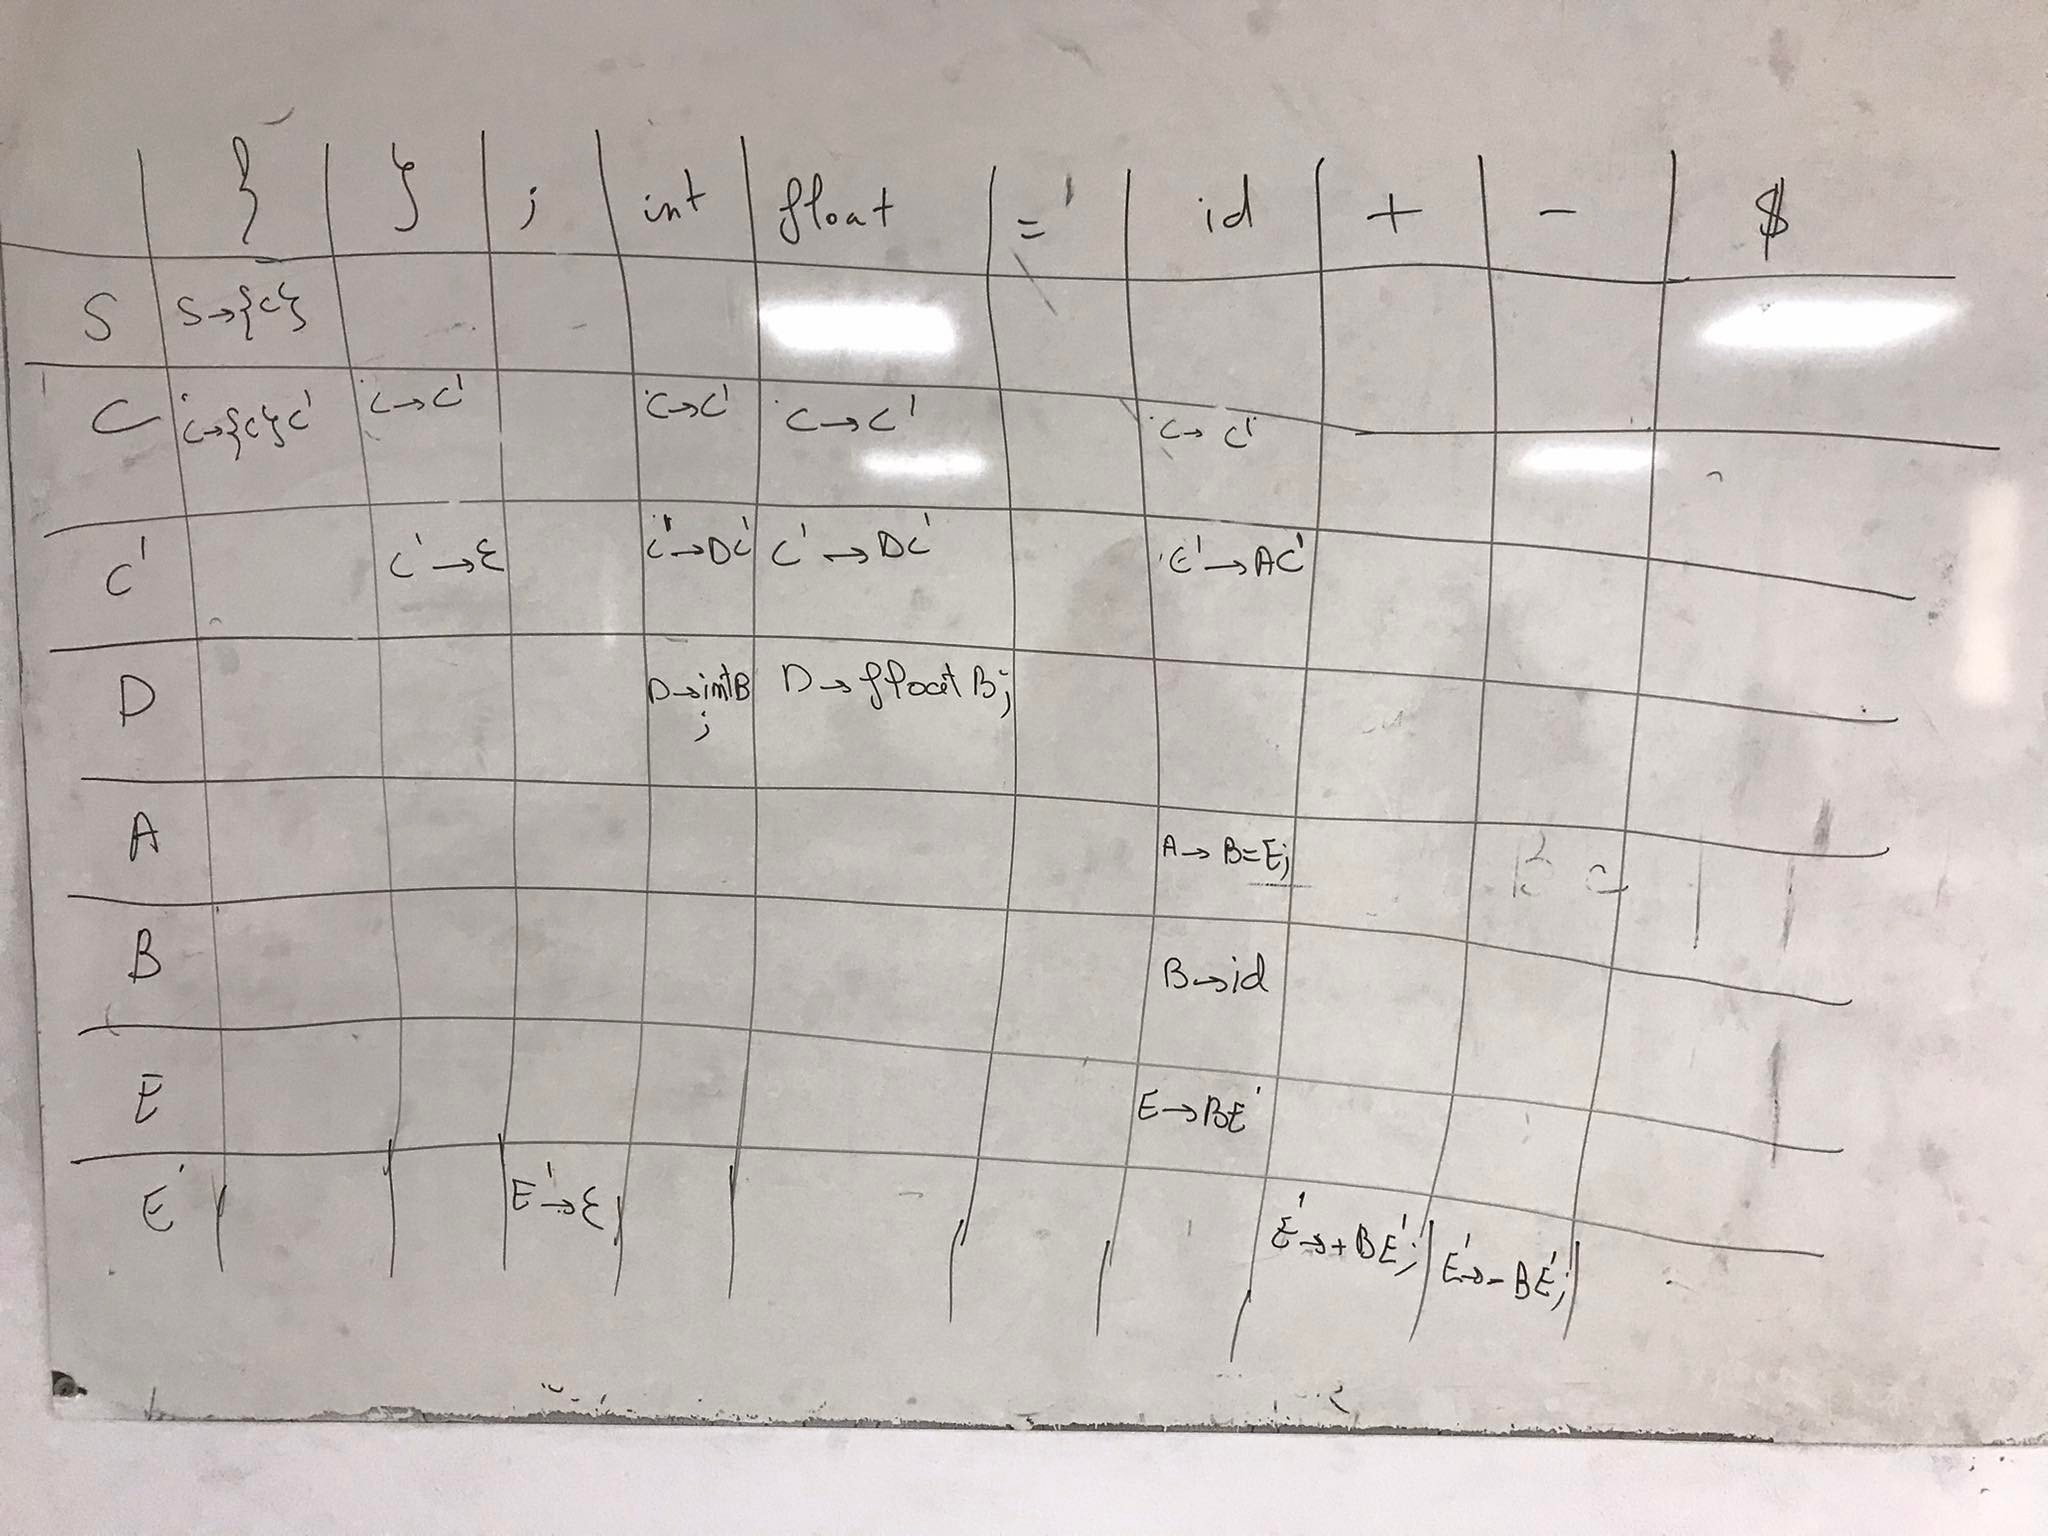 } } ; int float = id + - $
S S→{C}
C C→{C}C' C→C' C→C' C→C' C→C'
C' C'→ε C'→DC' C'→DC' E'→AC'
D D→intB; D→float B;
A A→B=E;
B B→id
E E→BE'
E' E'→ε E'→+BE'; E'→-BE';